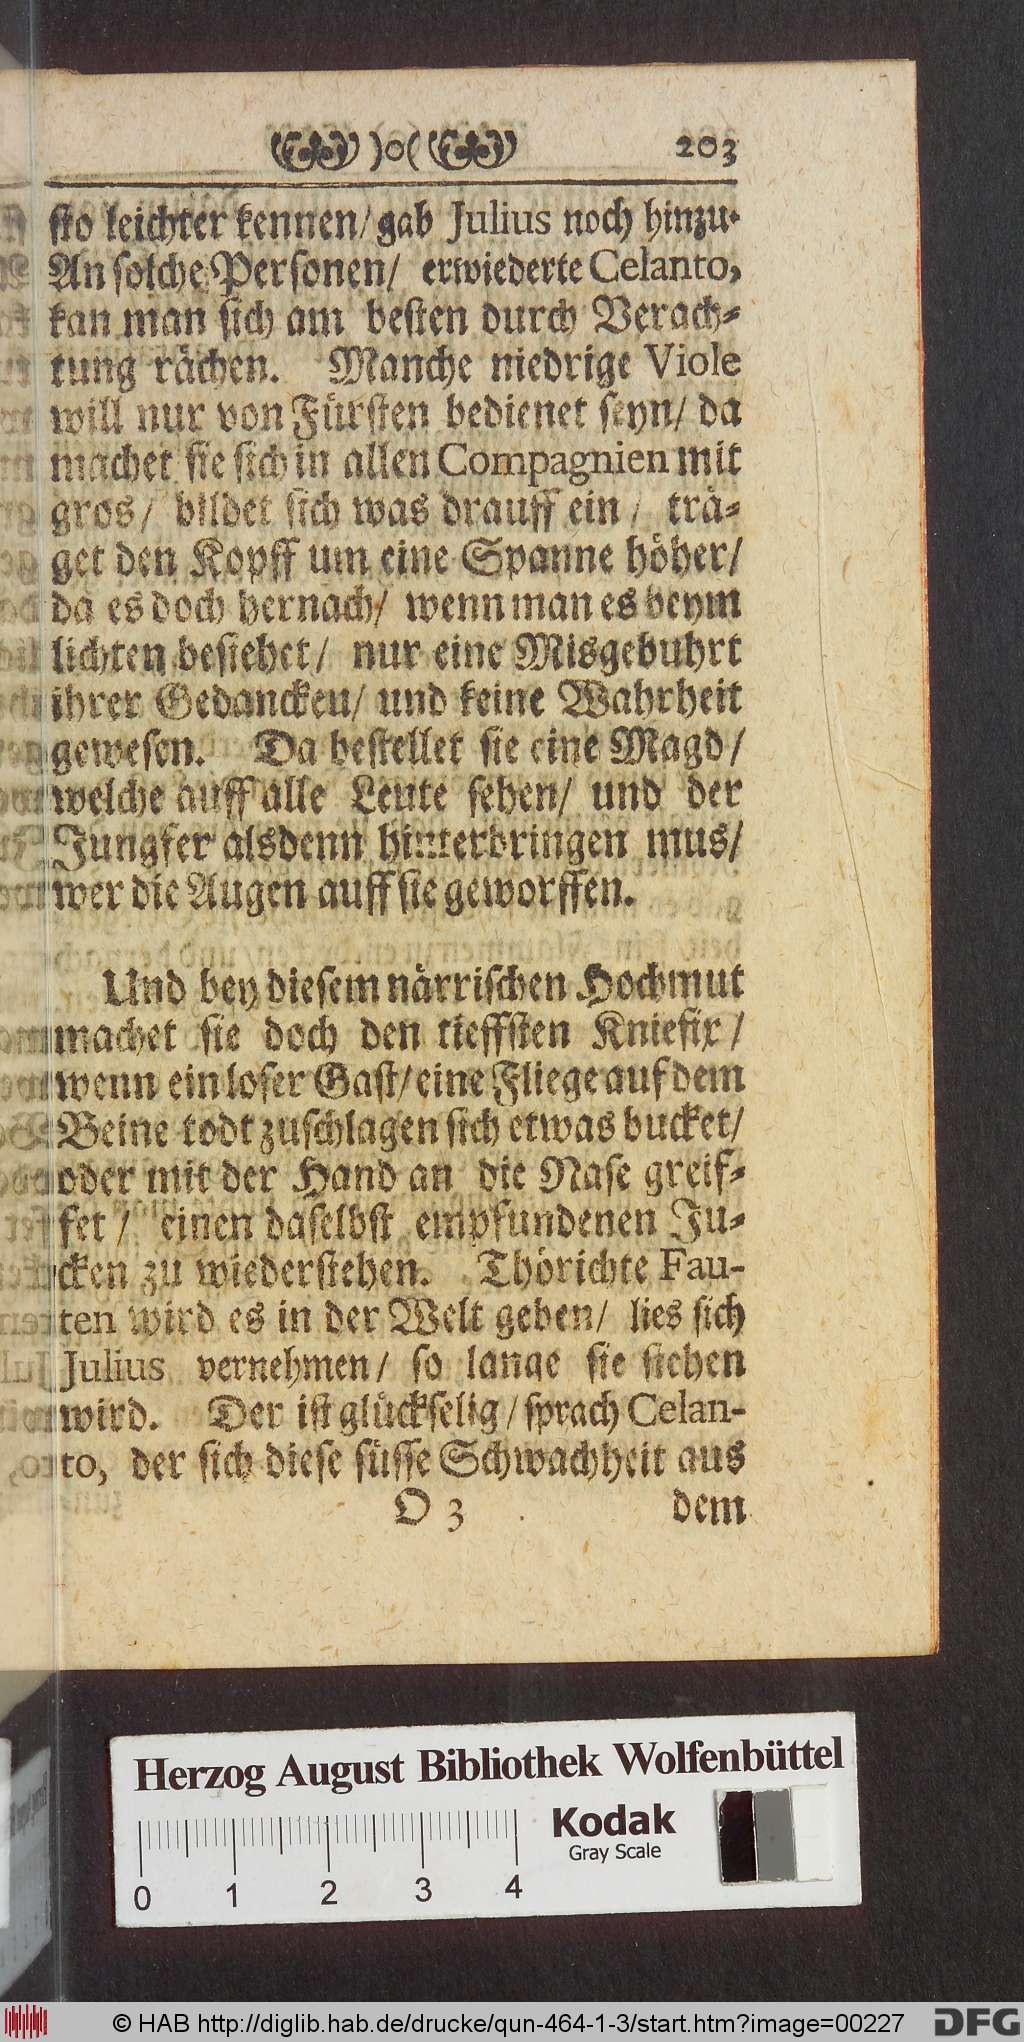 )o( 203
sto leichter kennen/ gab Julius noch hinzu.
An solche Personen/ erwiederte Celanto,
kan man sich am besten durch Verach-
tung rächen. Manche niedrige Viole
will nur von Fürsten bedienet seyn/ da
machet sie sich in allen Compagnien mit
gros/ bildet sich was drauff ein/ trä-
get den Kopff um eine Spanne höher/
da es doch hernach/ wenn man es beym
lichten besiehet/ nur eine Misgebuhrt
ihrer Gedancken/ und keine Wahrheit
gewesen. Da bestellet sie eine Magd/
welche auff alle Leute sehen/ und der
Jungfer alsdenn hinterbringen mus/
wer die Augen auff sie geworffen.
Und bey diesem närrischen Hochmut
machet sie doch den tieffsten Kniefix/
wenn ein loser Gast/ eine Fliege auf dem
Beine todt zuschlagen sich etwas bucket/
oder mit der Hand an die Nase greif-
fet/ einen daselbst empfundenen Ju-
cken zu wiederstehen. Thörichte Fau-
ten wird es in der Welt geben/ lies sich
Julius vernehmen/ so lange sie stehen
wird. Der ist glückselig/ sprach Celan-
to, der sich diese süsse Schwachheit aus
O 3 dem
Herzog August Bibliothek Wolfenbüttel
Kodak
Gray Scale
0 1 2 3 4
© HAB http://diglib.hab.de/drucke/qun-464-1-3/start.htm?image=00227
DFG